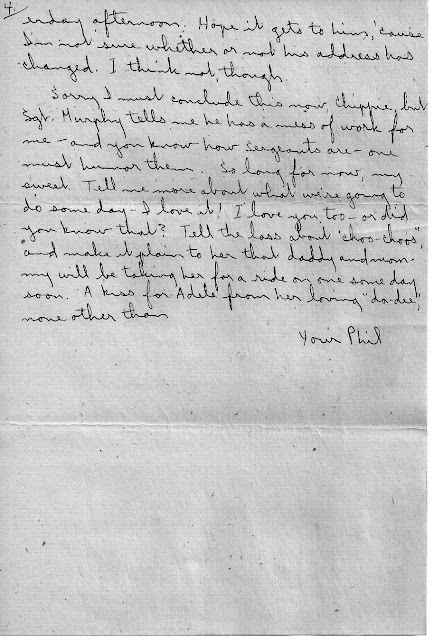 4.
erday afternoon. Hope it gets to him, 'cause
I'm not sure whether or not his address has
changed. I think not, though.
Sorry I must conclude this now, Chippie, but
Sgt. Murphy tells me he has a mess of work for
me - and you know how Sergeants are - one
must humor them. So long for now, my
sweet. Tell me more about what we're going to
do some day - I love it! I love you, too - or did
you know that? Tell the lass about "choo-choos",
and make it plain to her that daddy and mom-
my will be taking her for a ride on one some day
soon. A kiss for Adele from her loving "da-dee",
none other than
Your Phil